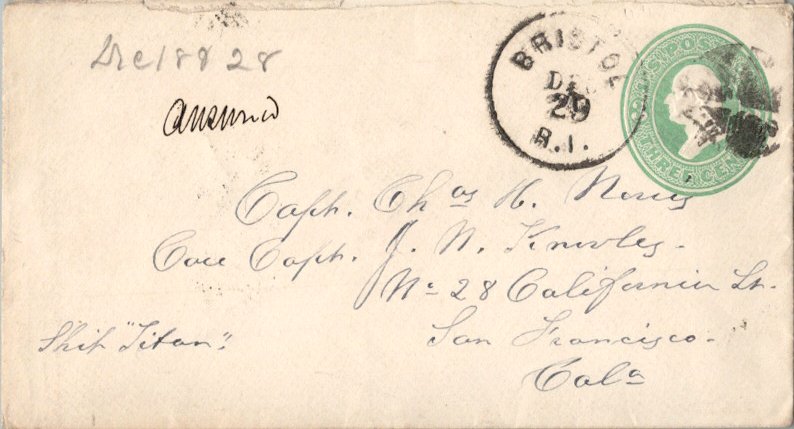 Dec 18 28
answered
BRISTOL
DEC
29
R.I.
U.S. POSTAGE
THREE CENTS
Capt. Chas H. Nevis
Care Capt. J. N. Knowles.
No 28 California St.
San Francisco.
Cala
Ship "Titan".